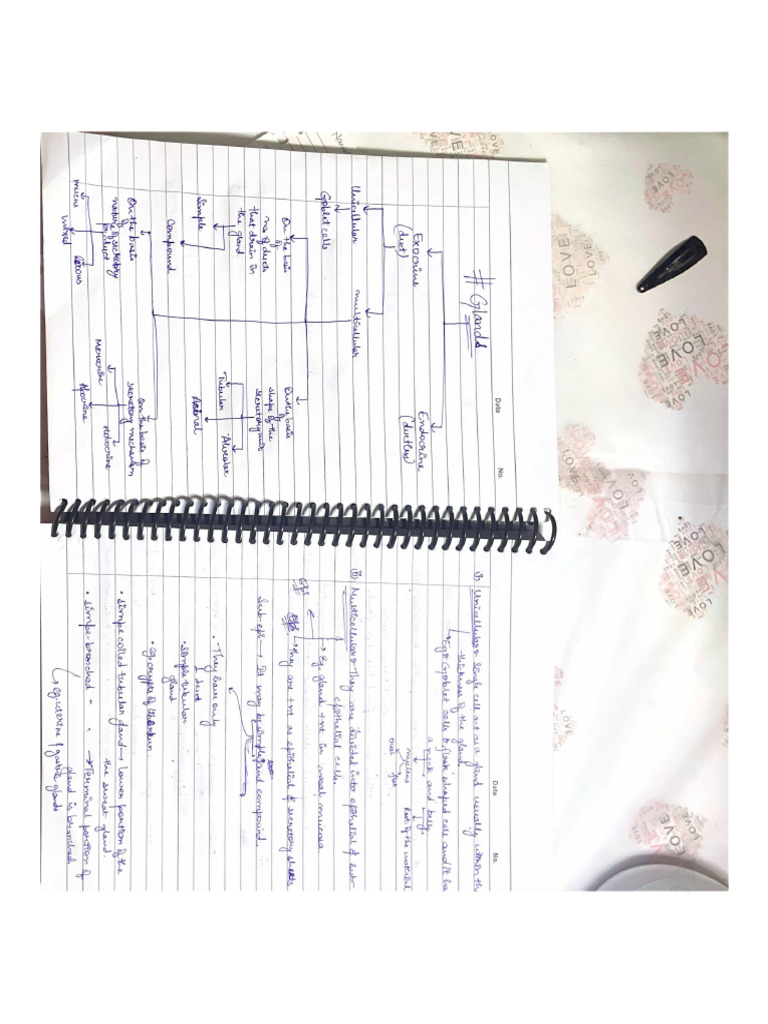 Date
No.
# Glands
Exocrine
(duct)
Endocrine
(ductless)
Unicellular
multicellular
Goblet cells
On the basis
of
no of ducts
that drain in
the gland
On the basis
of
shape of the
secretory unit
Simple
Compound
Tubular
Alveolar
Acinal
On the basis
of
nature of secretory
product
On the basis of
secretory mechanism
mucus
mixed
serous
Merocrine
Apocrine
Holocrine
Date
No.
i) Unicellular: Single cell act as a gland usually within the
thickness of the gland
Eg: Goblet cells: flask shaped cell and it has
a neck and belly.
nucleus
Rest of the material
oval
ii) Multicellular: They are divided into epithelial & sub-
epithelial cells
Eg. gland +nt in nasal mucosa
Epi → They are +nt as epithelial & secretory sheets
Sub-epi → It may be simple and compound.
• They have only
1 duct
• Simple tubular
gland
• eg. crypts of
• Simple coiled tubular gland → Lower portion of
the sweat gland.
• Simple-branched " " → Terminal portion of
gland is branched
eg uterine & gastric glands
LOVE
LOVE
LOVE
LOVE
LOVE
LOVE
LOVE